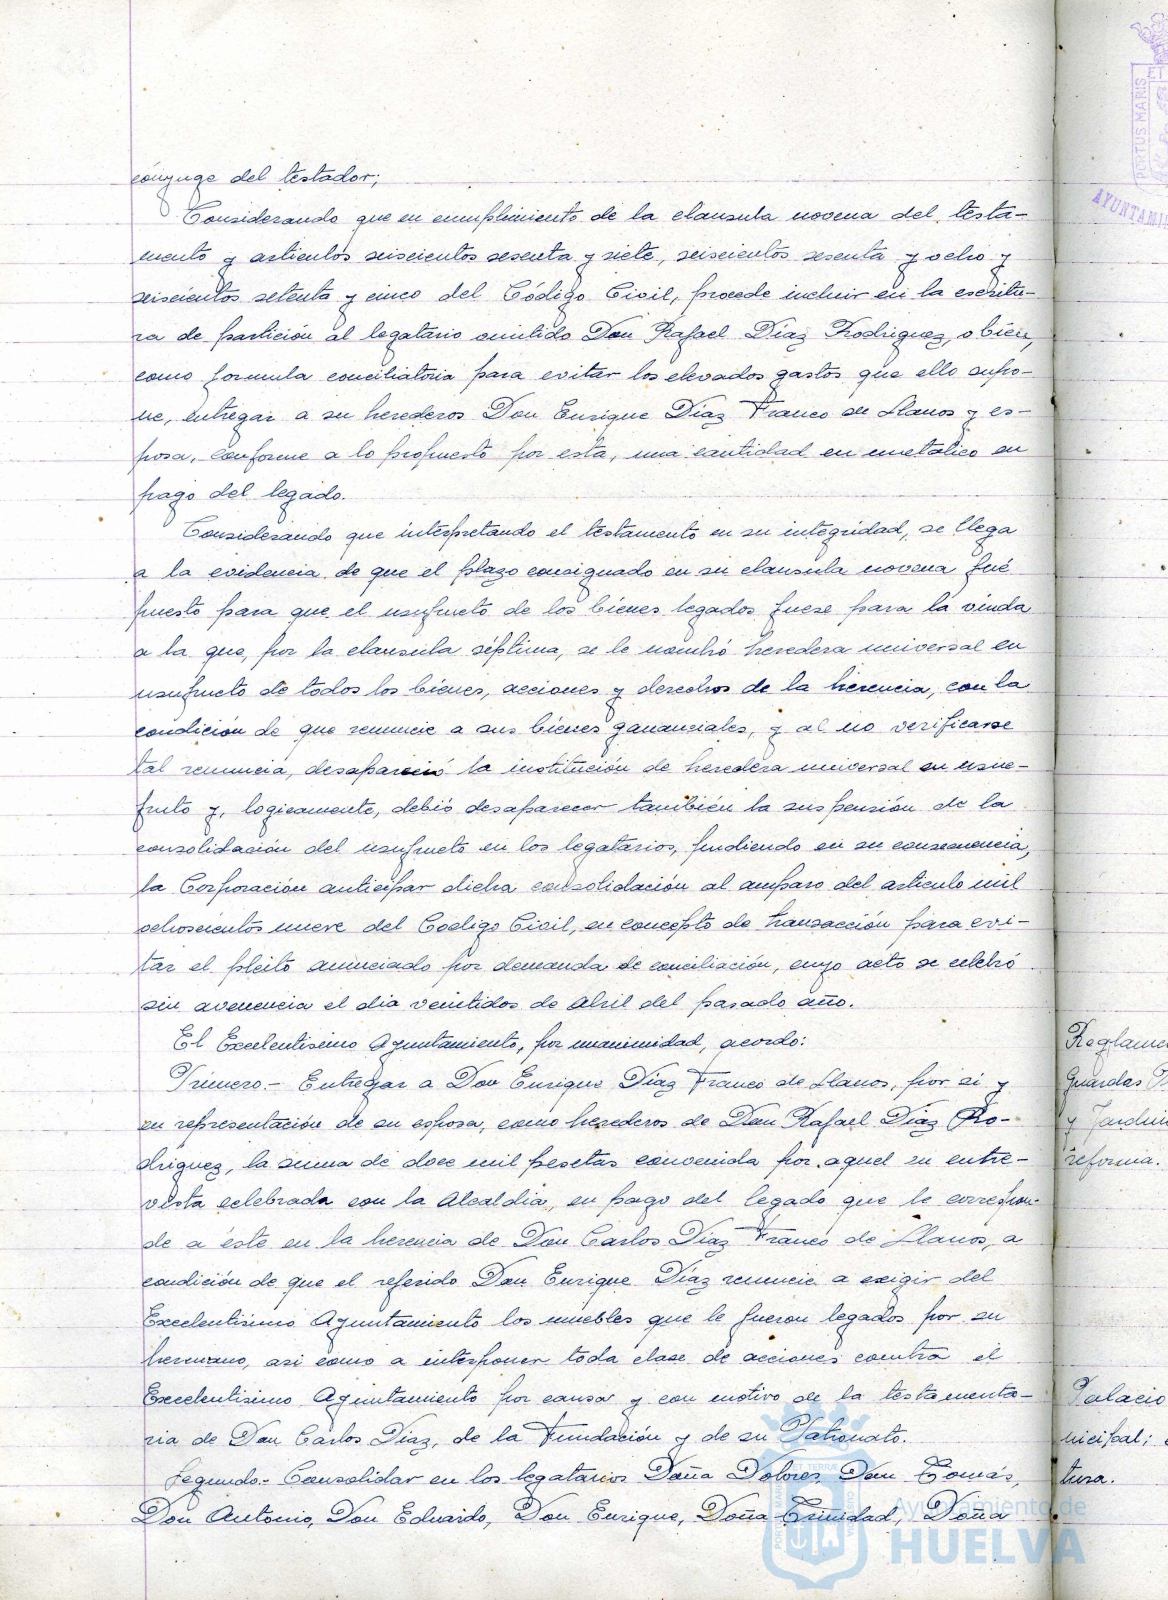 cónyuge del testador;
Considerando que en cumplimiento de la clausula novena del testa-
mento y articulos seiscientos sesenta y siete, seiscientos sesenta y ocho y
seiscientos setenta y cinco del Código Civil, procede incluir en la escritu-
ra de partición al legatario omitido Don Rafael Díaz Rodriguez, o bien,
como formula conciliatoria para evitar los elevados gastos que ello supo-
ne, entregar a su herederos Don Enrique Díaz Franco de Llanos y es-
posa, conforme a lo propuesto por esta, una cantidad en metalico en
pago del legado.
Considerando que interpretando el testamento en su integridad, se llega
a la evidencia de que el plazo consignado en su clausula novena fué
puesto para que el usufructo de los bienes legados fuese para la viuda
a la que, por la clausula séptima, se le nombró heredera universal en
usufructo de todos los bienes, acciones y derechos de la herencia, con la
condición de que renuncie a sus bienes gananciales, y al no verificarse
tal renuncia, desapareció la institución de heredera universal en usu-
fruto y, logicamente, debió desaparecer también la suspensión de la
consolidación del usufructo en los legatarios, pudiendo en su consecuencia,
la Corporación anticipar dicha consolidación al amparo del articulo mil
ochoscientos nueve del Codigo Civil, en concepto de transacción para evi-
tar el pleito anunciado por demanda de conciliación, cuyo acto se celebró
sin avenencia el dia veintidos de Abril del pasado año.
El Excelentisimo Ayuntamiento, por unanimidad, acordo:
Primero.- Entregar a Don Enrique Díaz Franco de Llanos, por si y
en representación de su esposa, como herederos de Don Rafael Díaz Ro-
driguez, la suma de doce mil pesetas convenida por aquel en entre-
vista celebrada con la Alcaldía, en pago del legado que le correspon-
de a éste en la herencia de Don Carlos Díaz Franco de Llanos, a
condición de que el referido Don Enrique Díaz renuncie a exigir del
Excelentisimo Ayuntamiento los muebles que le fueron legados por su
hermano, asi como a interponer toda clase de acciones contra el
Excelentisimo Ayuntamiento por causa y con motivo de la testamenta-
ria de Don Carlos Díaz, de la Fundación y de su Patronato.
Segundo.- Consolidar en los legatarios Doña Dolores, Don Tomás,
Don Antonio, Don Eduardo, Don Enrique, Doña Trinidad, Doña
Reglame
Guardas
y Jardin
reforma.
Palacio
nicipal;
tura.
PORTUS MARIS
ET
AYUNTAMI
Ayuntamiento de
HUELVA